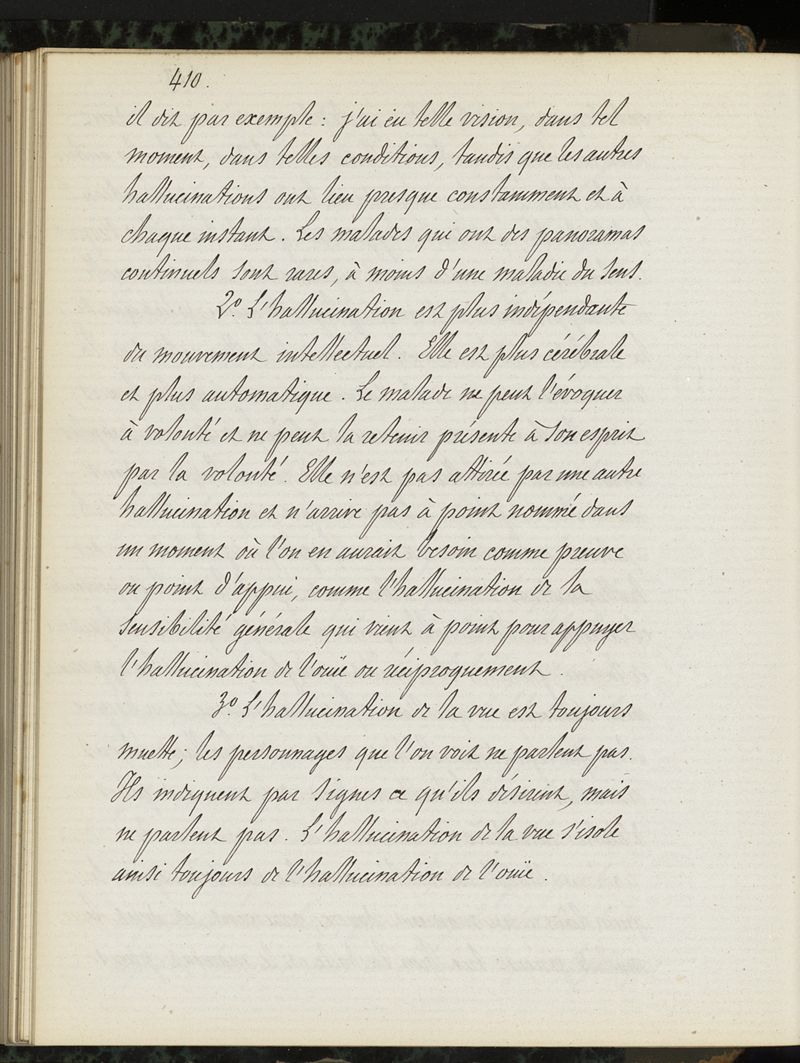 410.
il dit par exemple : j'ai eu telle vision, dans tel
moment, dans telles conditions, tandis que les autres
hallucinations ont lieu presque constamment et à
chaque instant. Les malades qui ont des panoramas
continuels sont rares, à moins d'une maladie du sens.
2º. L'hallucination est plus indépendante
du mouvement intellectuel. Elle est plus cérébrale
et plus automatique. Le malade ne peut l'évoquer
à volonté et ne peut la retenir présente à son esprit
par la volonté. Elle n'est pas attirée par une autre
hallucination et n'arrive pas à point nommé dans
un moment où l'on en aurait besoin comme preuve
ou point d'appui, comme l'hallucination de la
sensibilité générale qui vient à point pour appuyer
l'hallucination de l'ouïe ou réciproquement.
3º. L'hallucination de la vue est toujours
muette ; les personnages que l'on voit ne parlent pas.
Ils indiquent par signes ce qu'ils désirent, mais
ne parlent pas. L'hallucination de la vue s'isole
ainsi toujours de l'hallucination de l'ouïe.